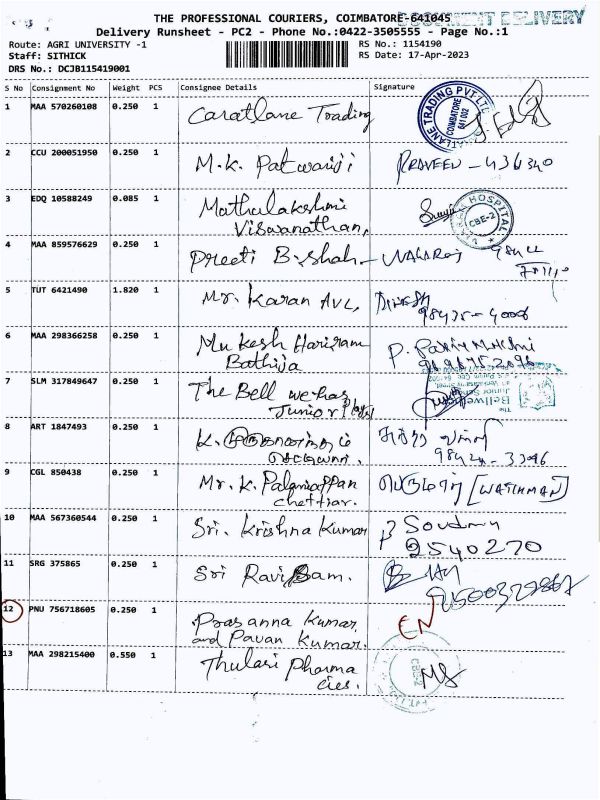 DOCUMENT DELIVERY
THE PROFESSIONAL COURIERS, COIMBATORE-641045
Delivery Runsheet - PC2 - Phone No.:0422-3505555 - Page No.:1
Route: AGRI UNIVERSITY -1 RS No.: 1154190
Staff: SITHICK RS Date: 17-Apr-2023
DRS No.: DCJB115419001
S No Consignment No Weight PCS Consignee Details Signature
1 MAA 570260108 0.250 1 Caratlane Trading
COIMBATORE 641 002
2 CCU 200051950 0.250 1 M.K. Patwariji PRAVEEN - 436340
3 EDQ 10588249 0.085 1 Mathulakshmi
Viswanathan, HOSPITAL CBE-2
4 MAA 859576629 0.250 1 Preeti B. Shah NAGARAJ 98422
5 TUT 6421490 1.820 1 Mr. Karan AVL, DINESH
98435-40006
6 MAA 298366258 0.250 1 Mukesh Hariram
Bathija
7 SLM 317849647 0.250 1 The Bell wethers
Junior Plays
The Bellwethers
8 ART 1847493 0.250 1 K.
9 CGL 850438 0.250 1 Mr. K. Palaniappan [WATCHMAN]
Chettiar.
10 MAA 567360544 0.250 1 Sri. Krishna Kumar
2540270
11 SRG 375865 0.250 1 Sri Ravi Ram.
12 PNU 756718605 0.250 1 Prasanna Kumar
and Pavan Kumar. EN
13 MAA 298215400 0.550 1 Thulasi Pharma
cies. CBE-2 MS